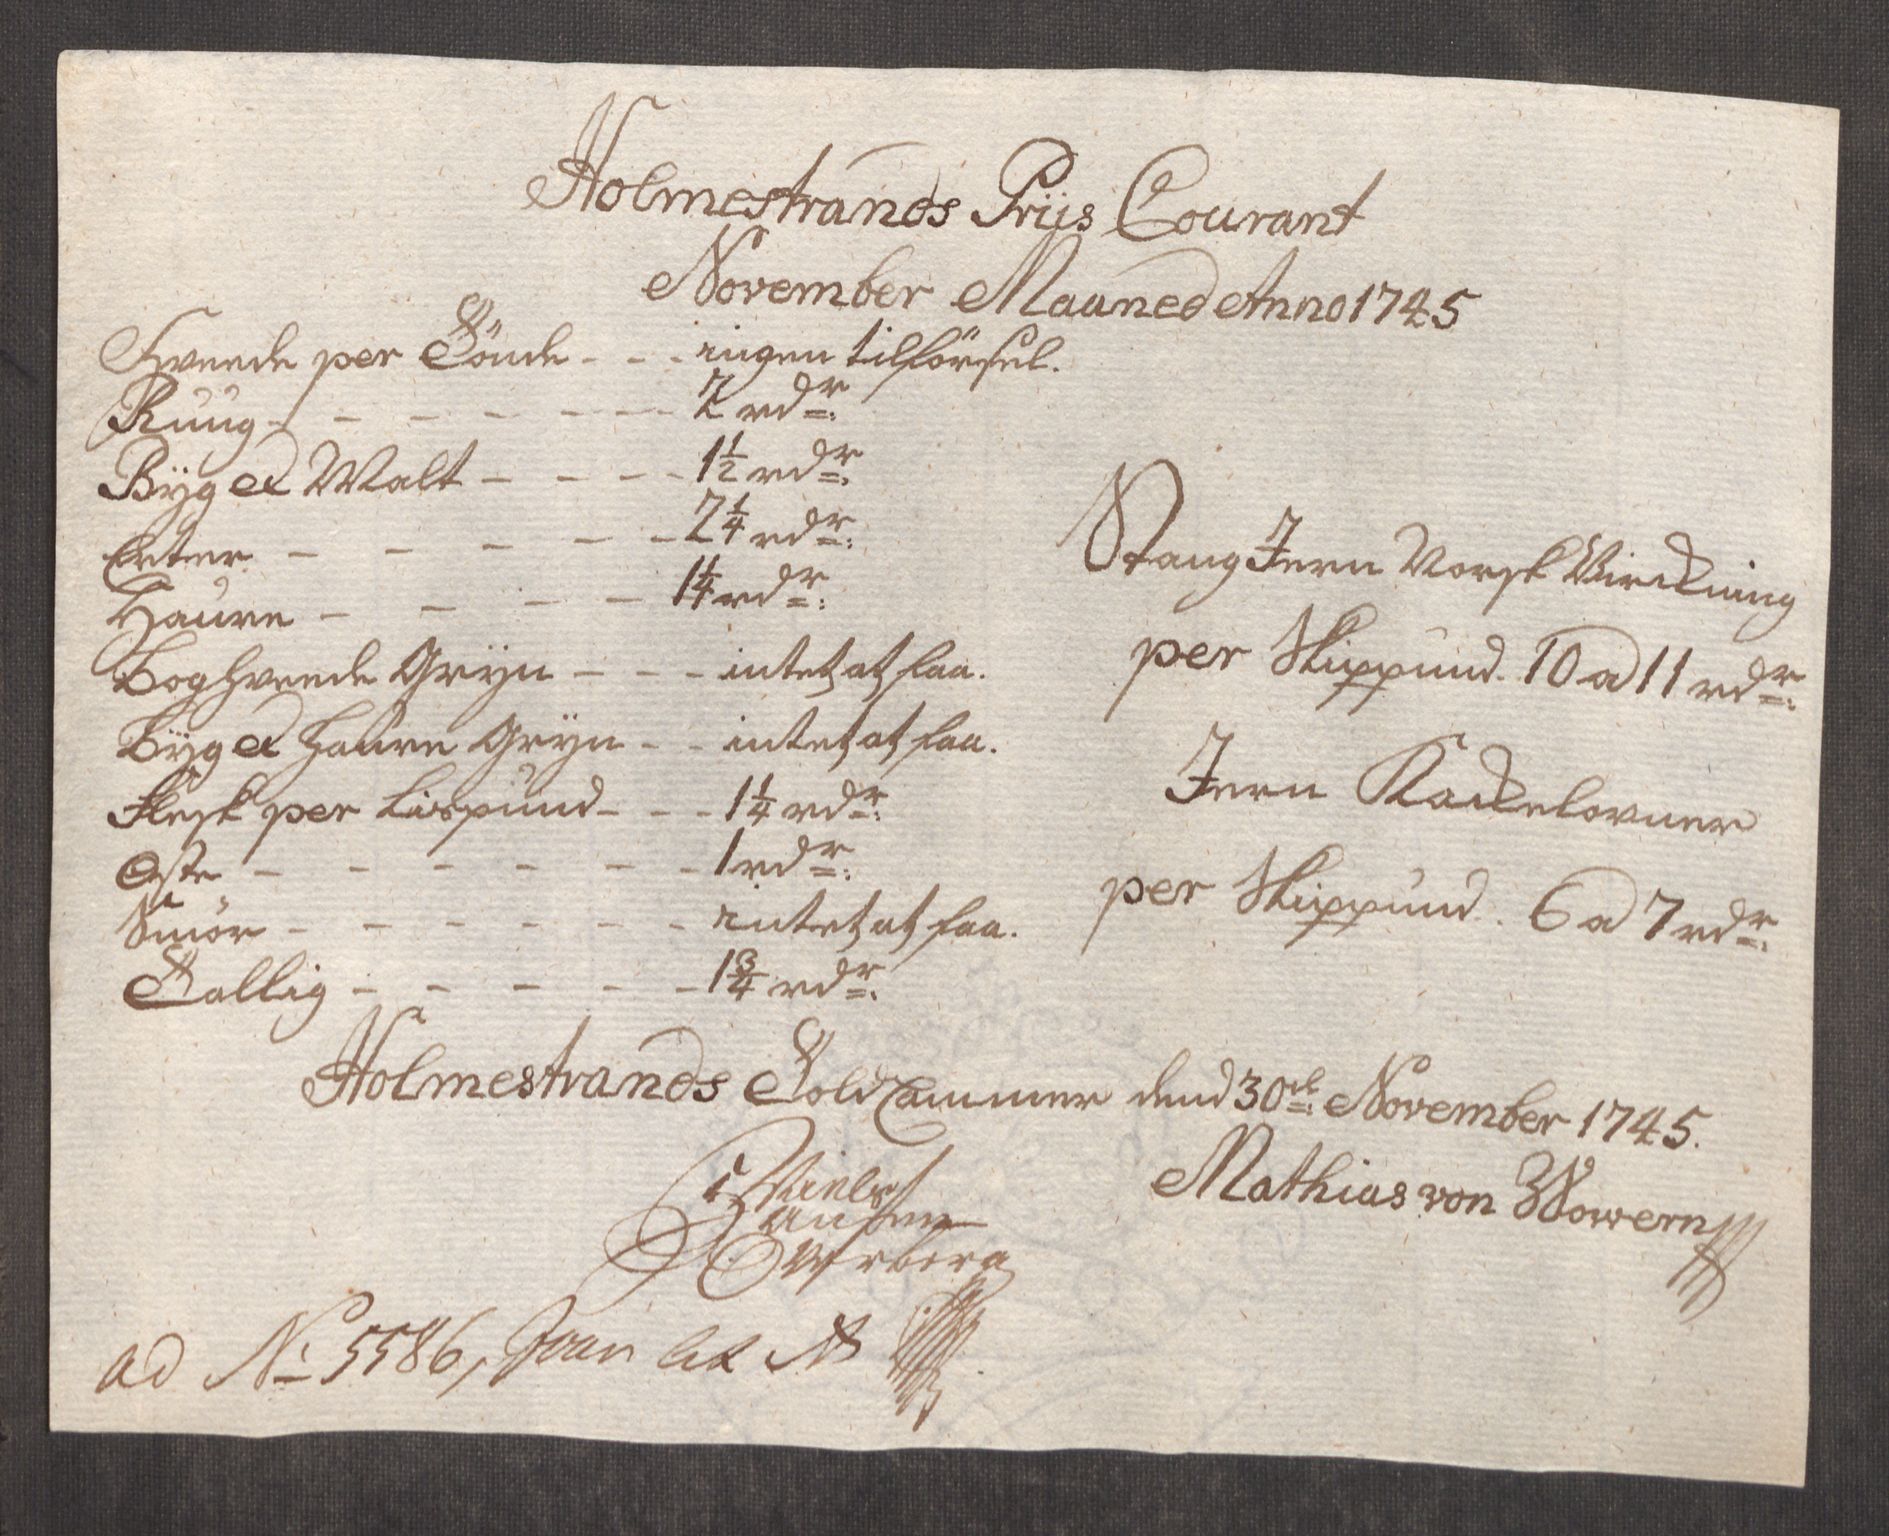 Holmestrands Priis Courant
November Maaned Anno 1745
Hveede per Tönde - - - ingen tilförsel.
Ruug - - - - - - - 2 rdr:
Býg et Malt - - - - 1½ rdr:
Erter - - - - - - 2¼ rdr:
Haure - - - - 1¼ rdr:
Boghveede Grýn - - - intet at faa.
Býg et Haure Grýn - - intet at faa.
Flesk per Lispund - - - 1¼ rdr:
Oste - - - - - - - 1 rdr:
Smör - - - - - - intet at faa.
Tallig - - - - - 1¾ rdr:
Stang Jern Norsk Virckning
per Skippund. 10 a 11 rdr:
Jern Kackelovner
per Skippund. 6 a 7 rdr:
Holmestrands Told Cammer dend 30te: November 1745.
Mathias von Wowern
Niels
Hansen
Werberg
ad No. 5586, Joan lit